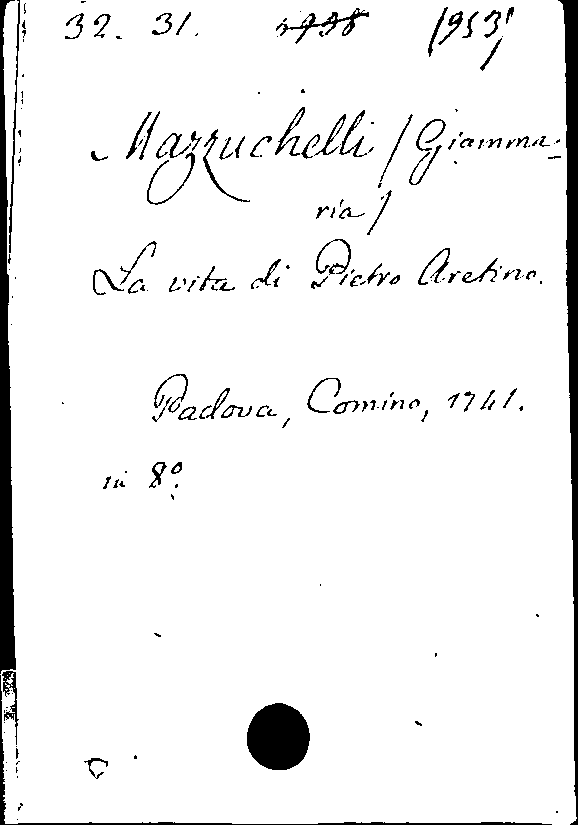 32. 31. (953)
Mazzuchelli (Giamma-
ria)
La vita di Pietro Aretino.
Padova, Comino, 1741.
in 8º.